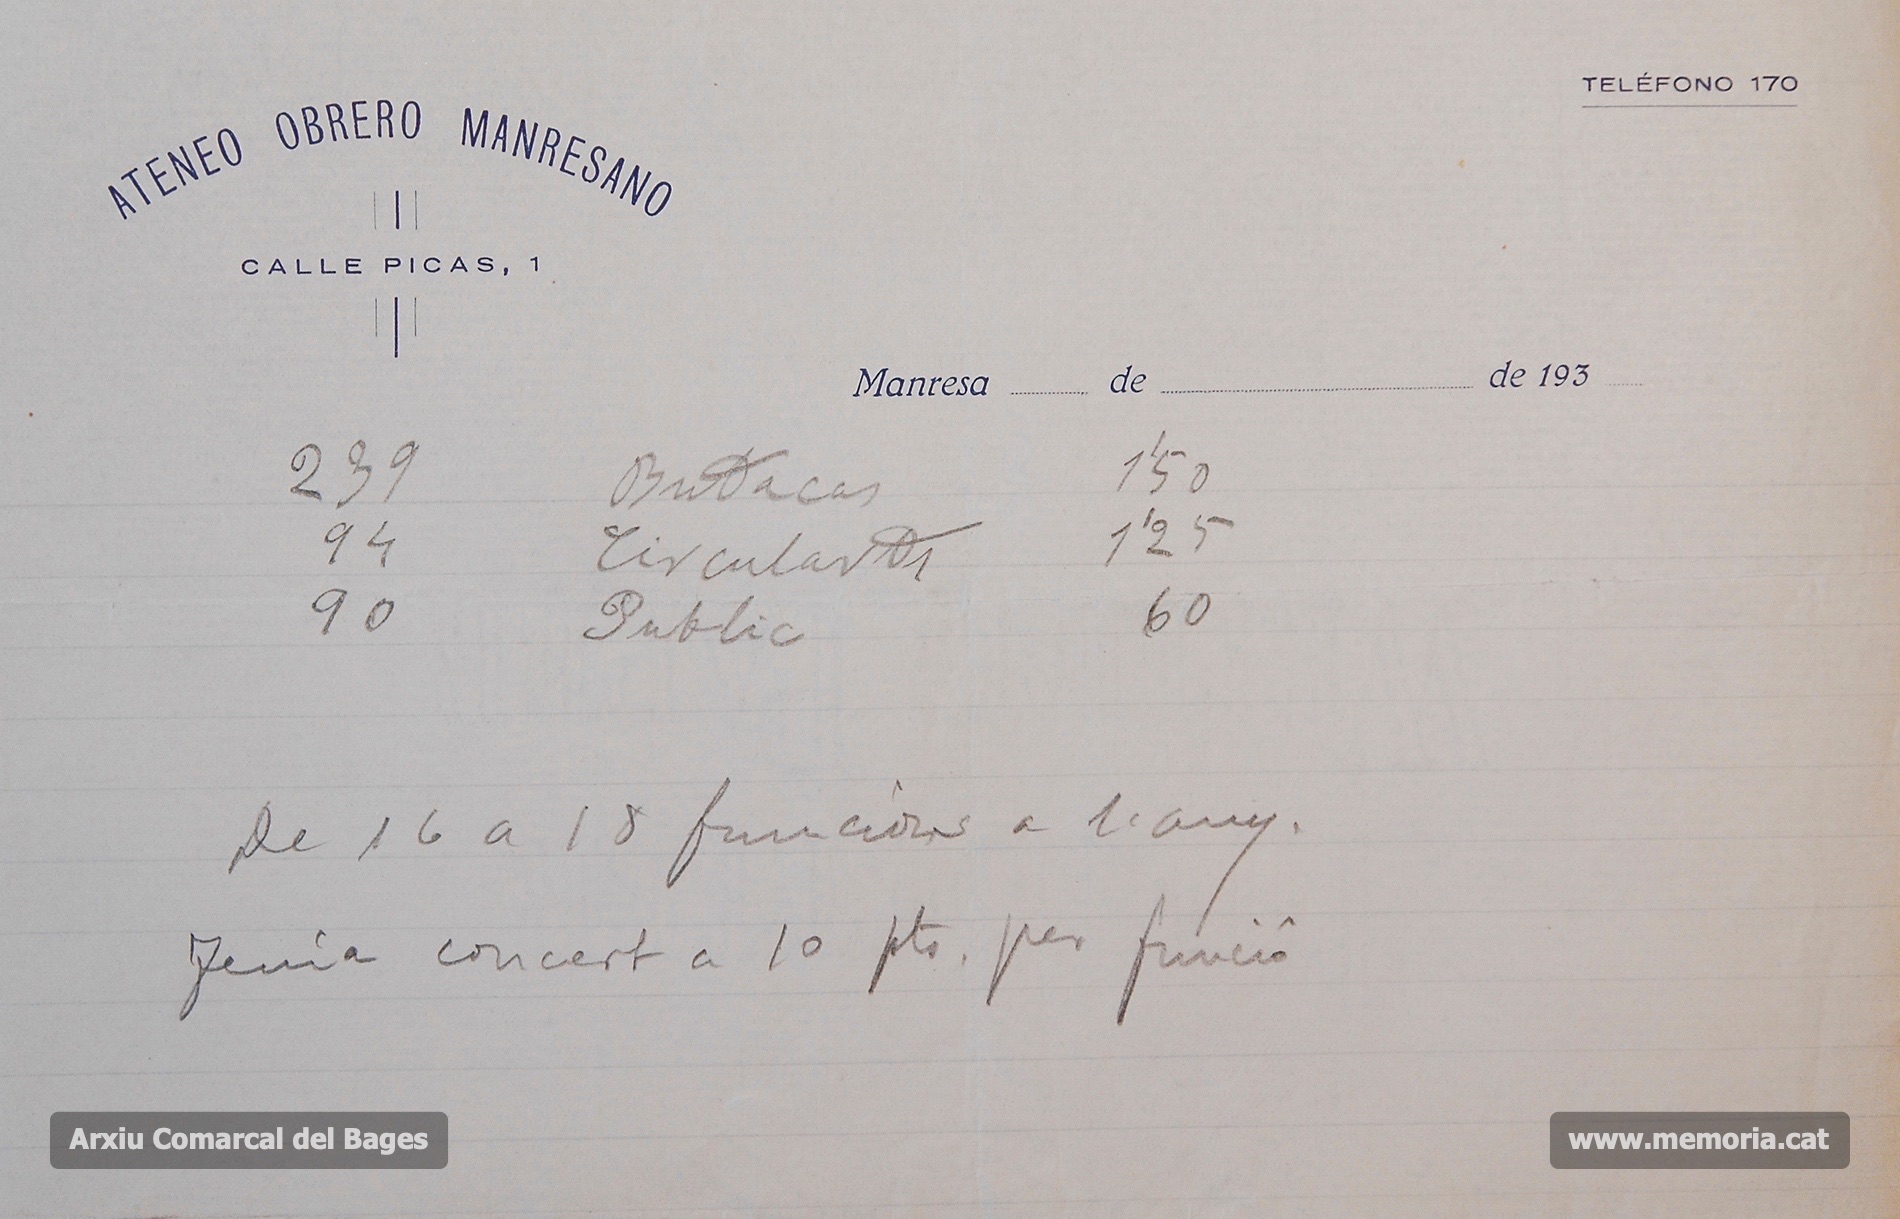 TELÉFONO 170
ATENEO OBRERO MANRESANO
CALLE PICAS, 1
Manresa de de 193
239 Butacas 1'50
94 Circulars 1'25
90 Public 60
De 16 a 18 funcións a l'any.
Tenia concert a 10 pts. per funció
Arxiu Comarcal del Bages
www.memoria.cat